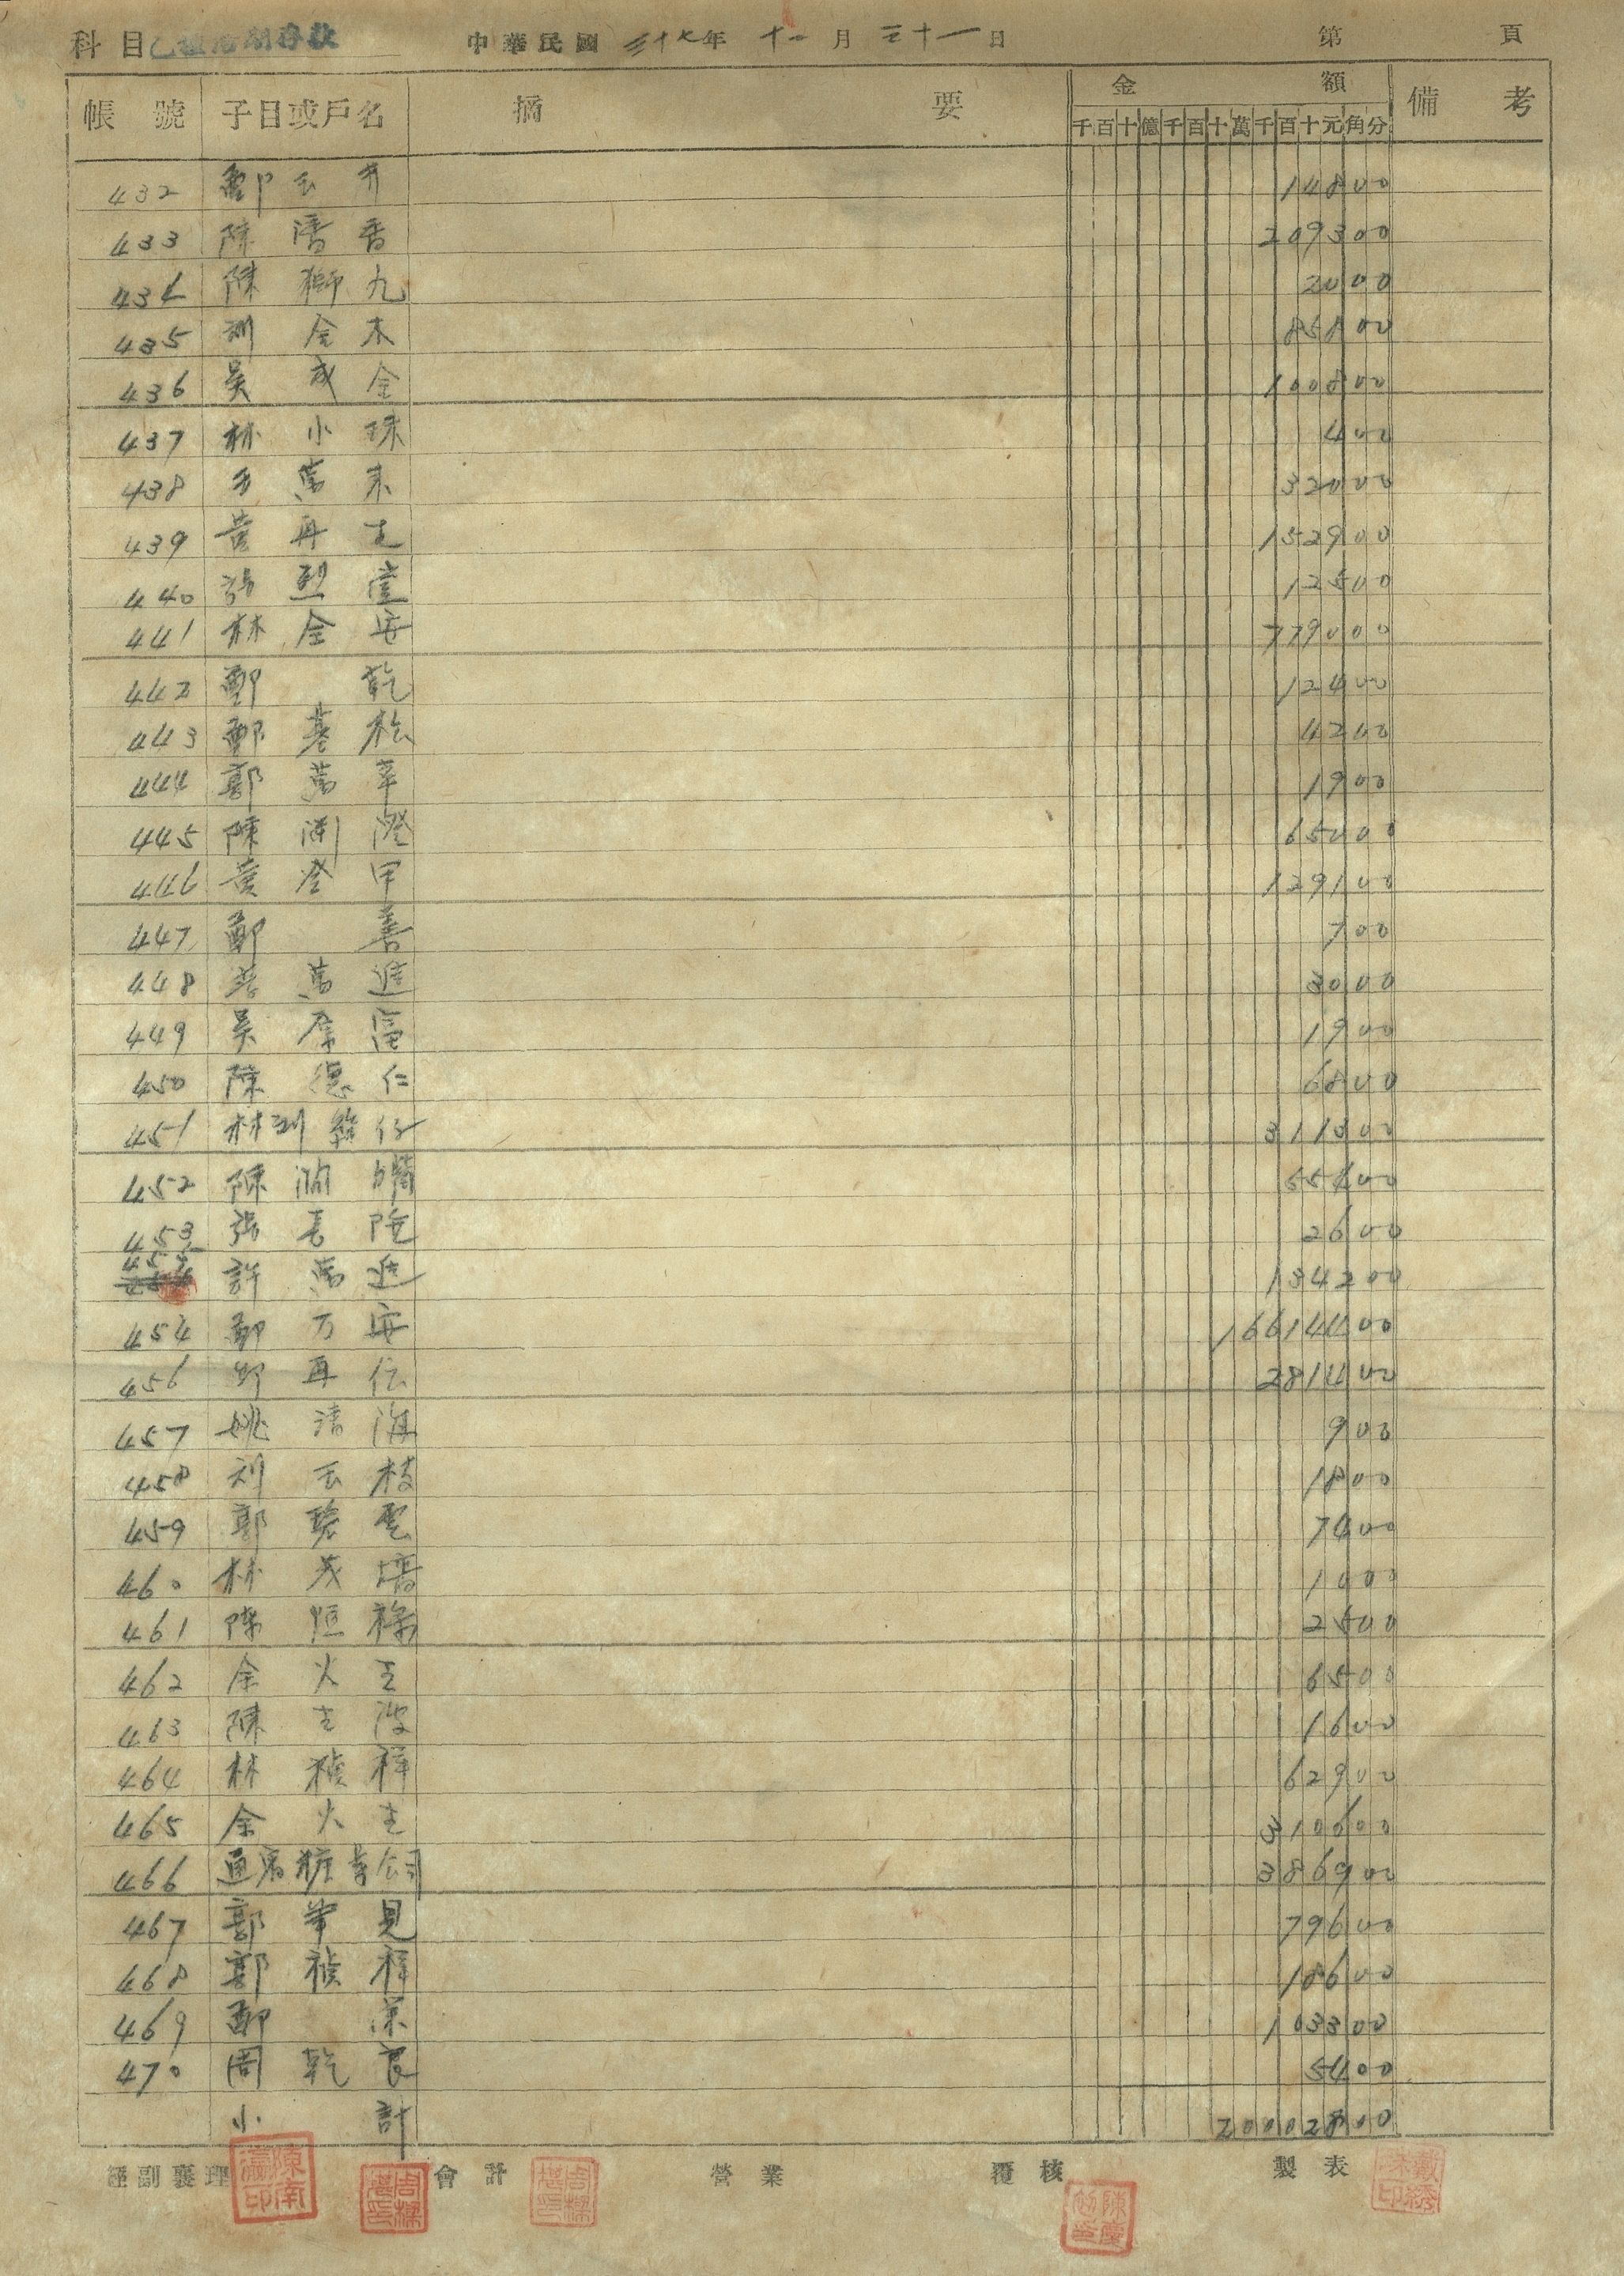 科目 乙種活期存款 中華民國 三十七年 十二月 三十一日 第 頁
帳號 子目或戶名 摘要 金額 備考
千百十億千百十萬千百十元角分
432 鄭玉升 14800
433 陳清香 209300
434 陳獅九 2000
435 劉金木 85800
436 吳成金 100800
437 林小珠 400
438 萬來 32000
439 黃再生 152900
440 烈堂 12500
441 林金安 779000
442 鄭 乾 12400
443 鄭基松 4200
444 郭萬 1900
445 陳澄 65000
446 黃登甲 129100
447 鄭 善 700
448 萬進 3000
449 吳富 1900
450 陳德仁 6800
451 林劉 仔 311300
452 陳 55400
453 張喜 2600
455 許萬進 134200
454 鄭万安 16614400
456 再傳 281400
457 姚清海 900
458 劉玉枝 1800
459 郭碧雲 7400
460 林茂 1000
461 陳恒祿 2500
462 余火生 6500
463 陳生波 1600
464 林禎祥 62900
465 余火生 310600
466 通宵 公司 386900
467 郭 見 79600
468 郭禎祥 18600
469 鄭 103300
470 周乾良 5400
小計 20002800
經副襄理 會計 營業 覆核 製表